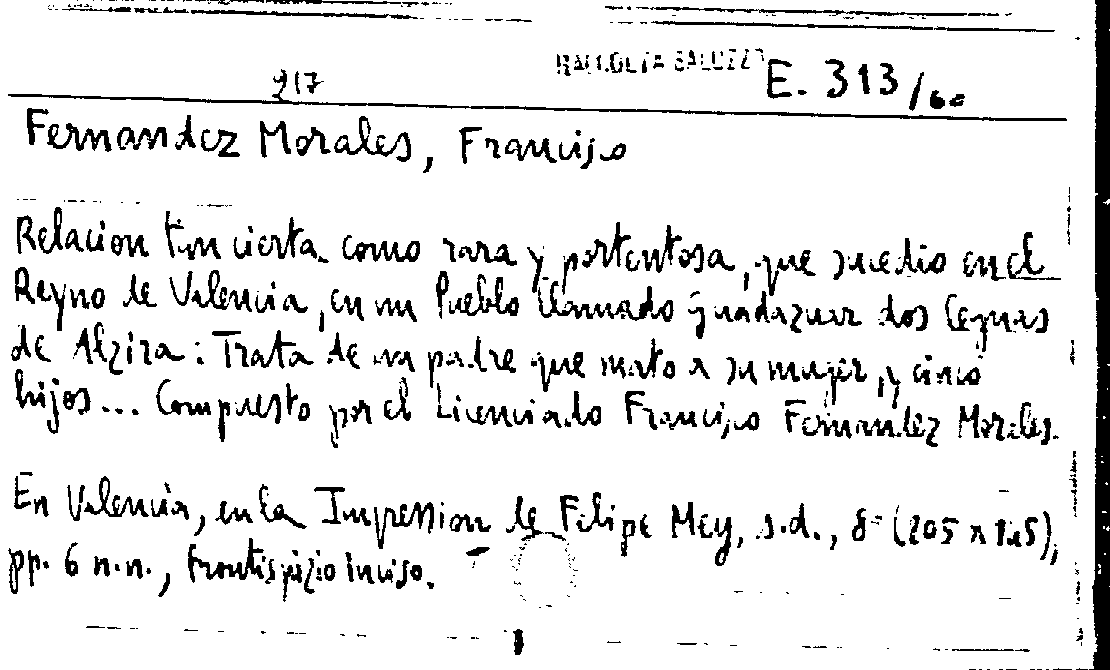 RACCOLTA SALUZZO E. 313/60
217
Fernandez Morales, Francisco
Relacion tan cierta como rara y portentosa, que sucedio en el
Reyno de Valencia, en un Pueblo llamado guadazuar dos leguas
de Alzira: Trata de un padre que mato a su mujer, y cinco
hijos... Compuesto por el Licenciado Francisco Fernandez Morales.
En Valencia, en la Impression de Felipe Mey, s.d., 8° (205 x 145),
pp. 6 n.n., frontispizio inciso.